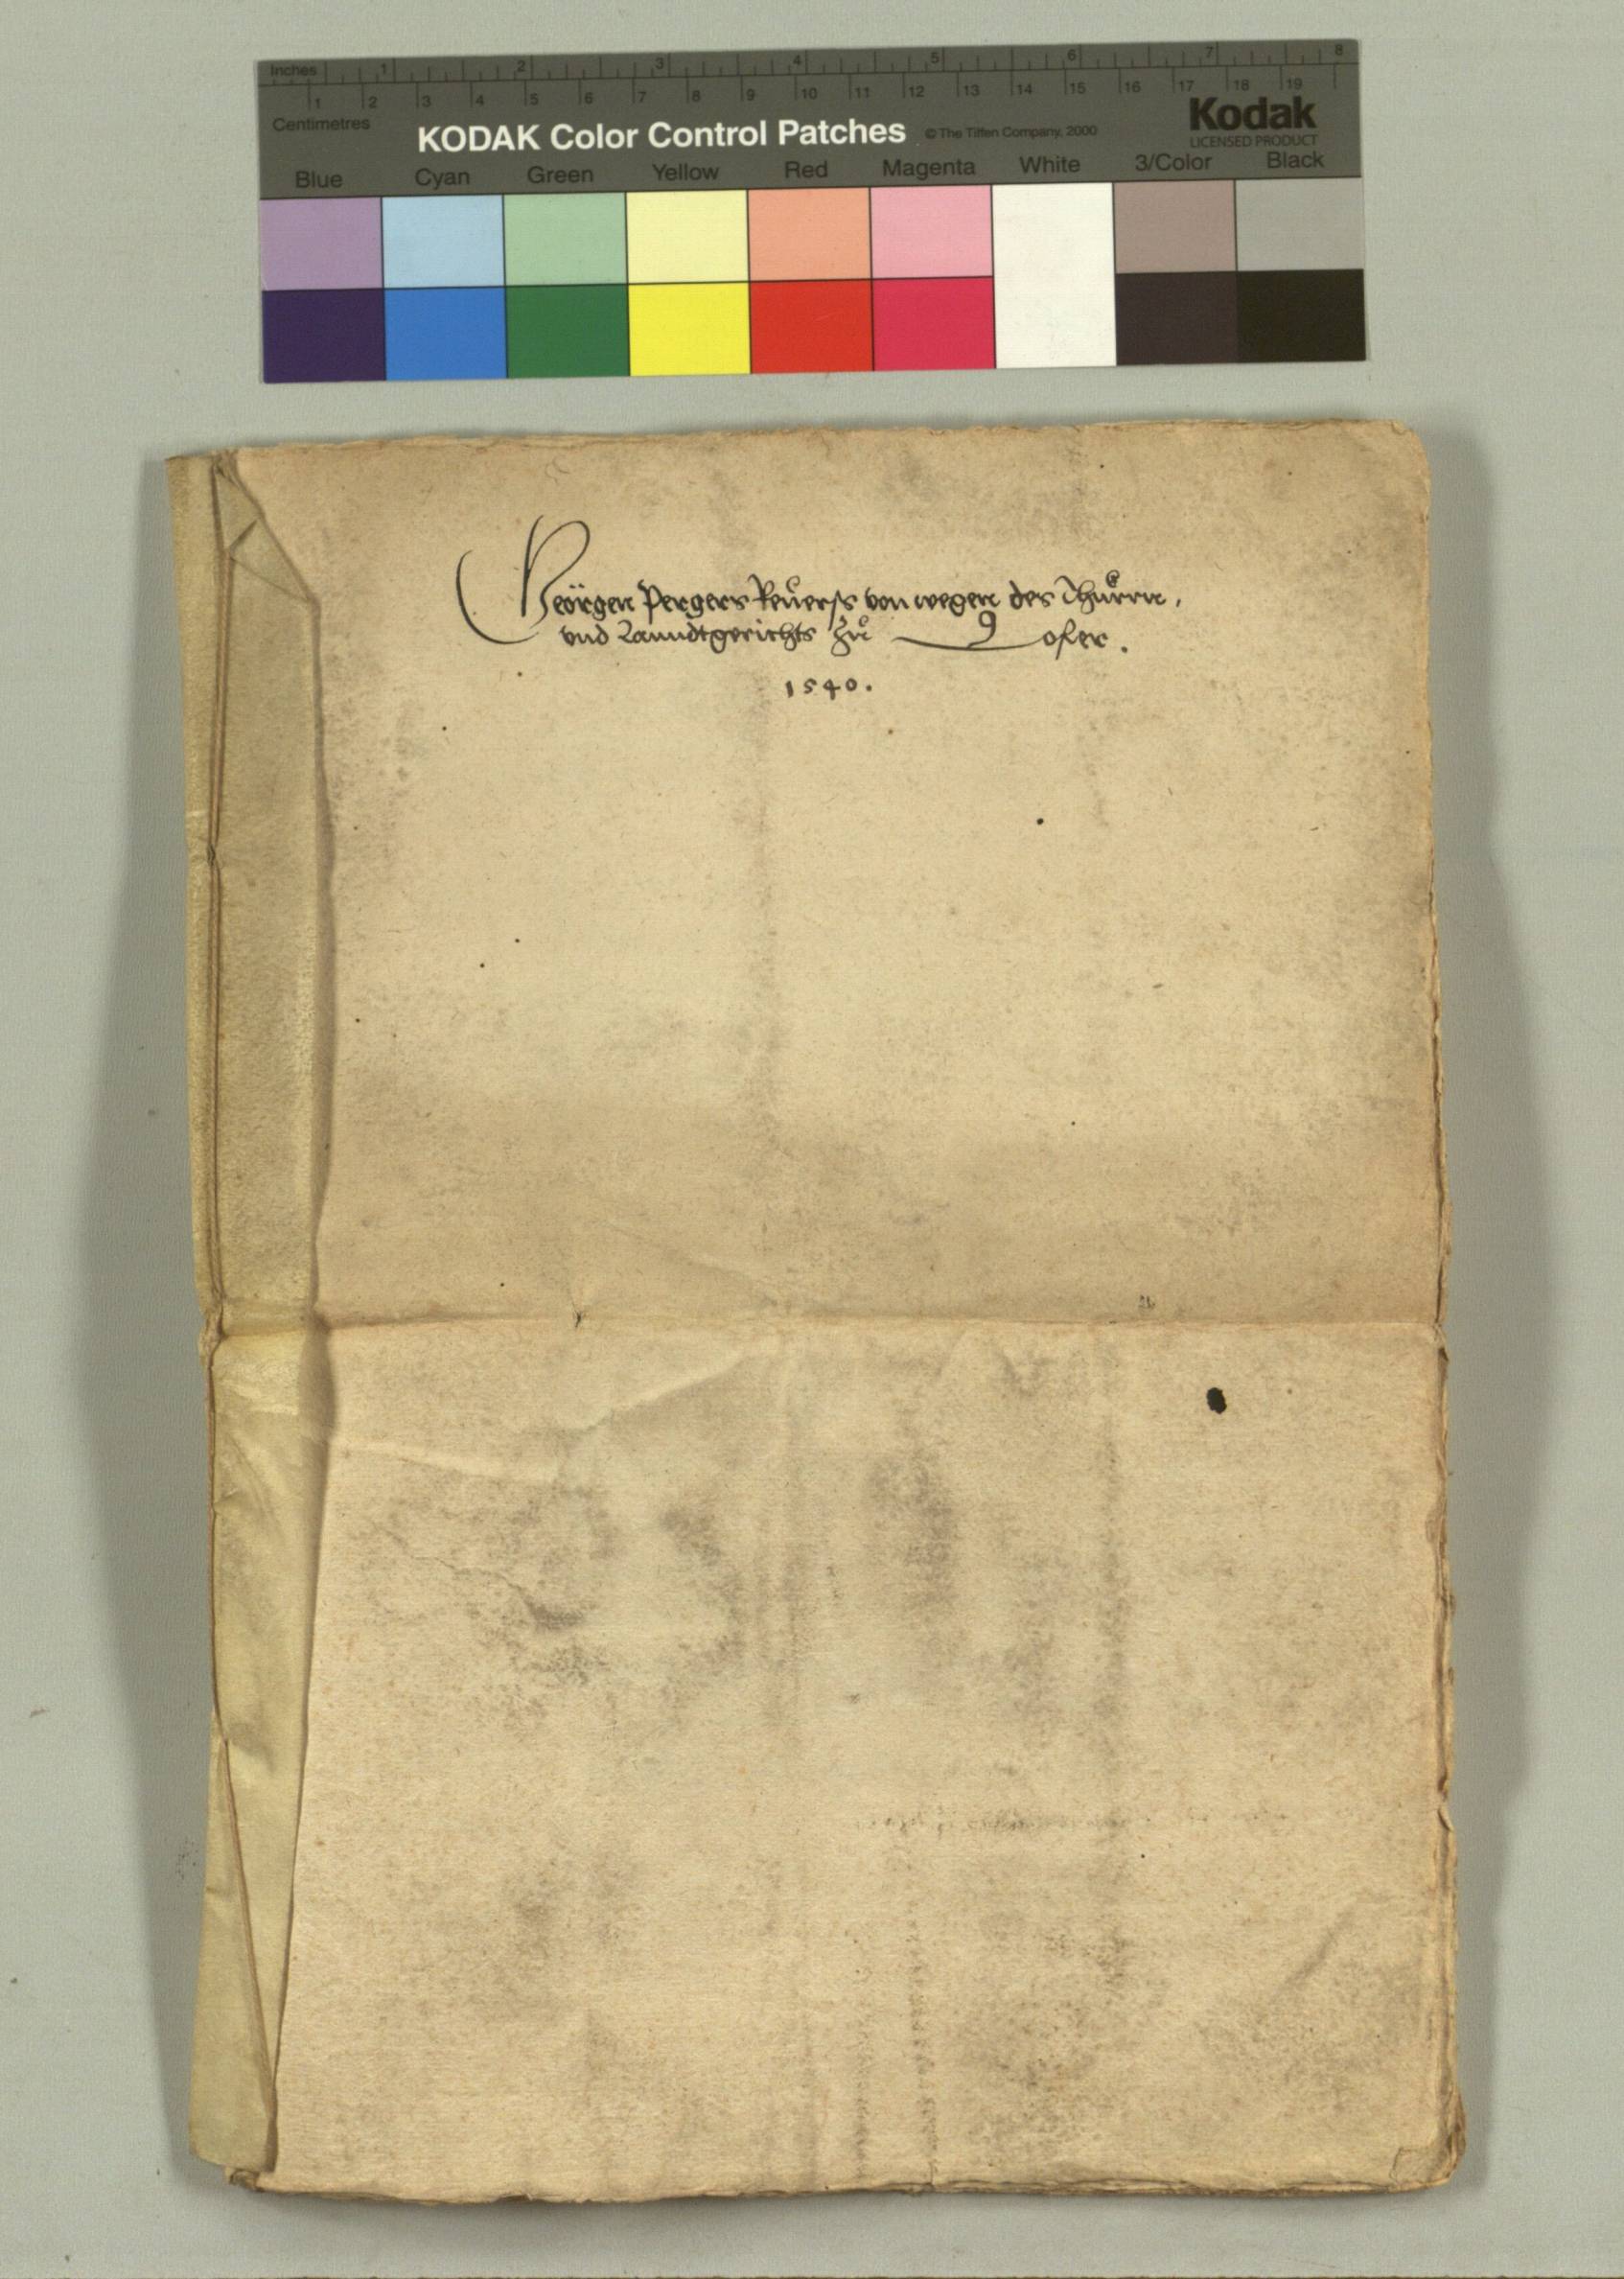 Inches 1 2 3 4 5 6 7 8
1 2 3 4 5 6 7 8 9 10 11 12 13 14 15 16 17 18 19
Centimetres
KODAK Color Control Patches © The Tiffen Company, 2000 Kodak
LICENSED PRODUCT
Blue Cyan Green Yellow Red Magenta White 3/Color Black
Geörgen Pergers Reuerss von wegen des Thurrn,
vnd Lanndtgerichts zu Lofer.
1540.